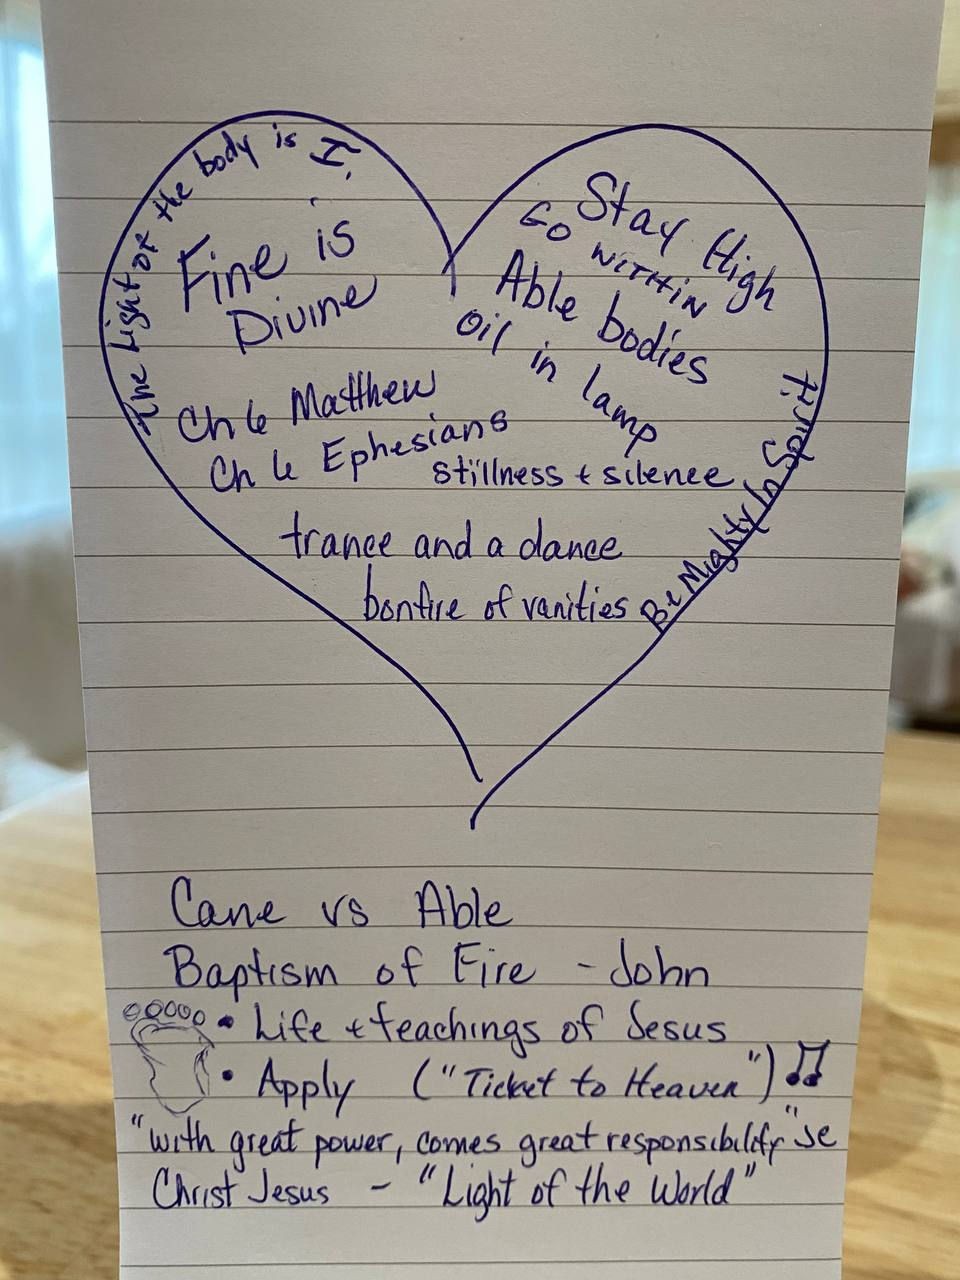 the Light of the body is I.
Fine is
Divine
Ch 6 Matthew
Ch 6 Ephesians
Stay High
Go within
Able bodies
Oil in lamp
stillness + silence
trance and a dance
bonfire of vanities
Be Mighty In Spirit
Cane vs Able
Baptism of Fire - John
• Life + teachings of Jesus
• Apply ("Ticket to Heaven") ♫
"with great power, comes great responsibility"
Christ Jesus - "Light of the World"